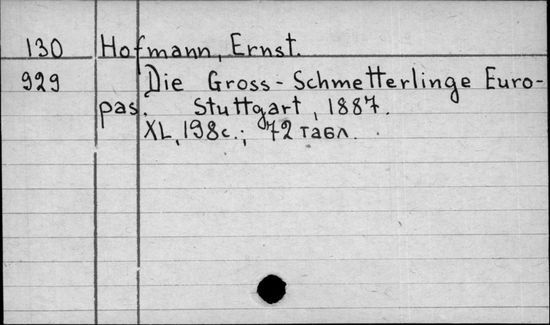 130 Hofmann, Ernst.
929 Die Gross-Schmetterlinge Euro-
pas. Stuttgart, 1887.
XL, 198с.; 72 табл.